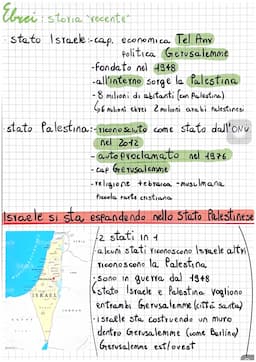 Ebrei: storia "recente"
• stato Israele:-cap. economica Tel Aviv
politica Gerusalemme
-fondato nel 1948
-all'interno sorge la Palestina
- 8 milioni di abitanti (con Palestina)
↳6 milioni ebrei 2 milioni arabi palestinesi
• stato Palestina:-riconosciuto come stato dall'ONU
nel 2012
- autoproclamato nel 1976
- cap. Gerusalemme
- religione + ebraica - musulmana
piccola parte cristiana
Israele si sta espandendo nello Stato Palestinese
-2 stati in 1
• alcuni stati riconoscono Israele altri
riconoscono la Palestina
• sono in guerra dal 1948
(stato Israele e Palestina vogliono
entrambi Gerusalemme (città santa)
• israele sta costruendo un muro
dentro Gerusalemme (come Berlino)
Gerusalemme est/ovest
ISRAEL